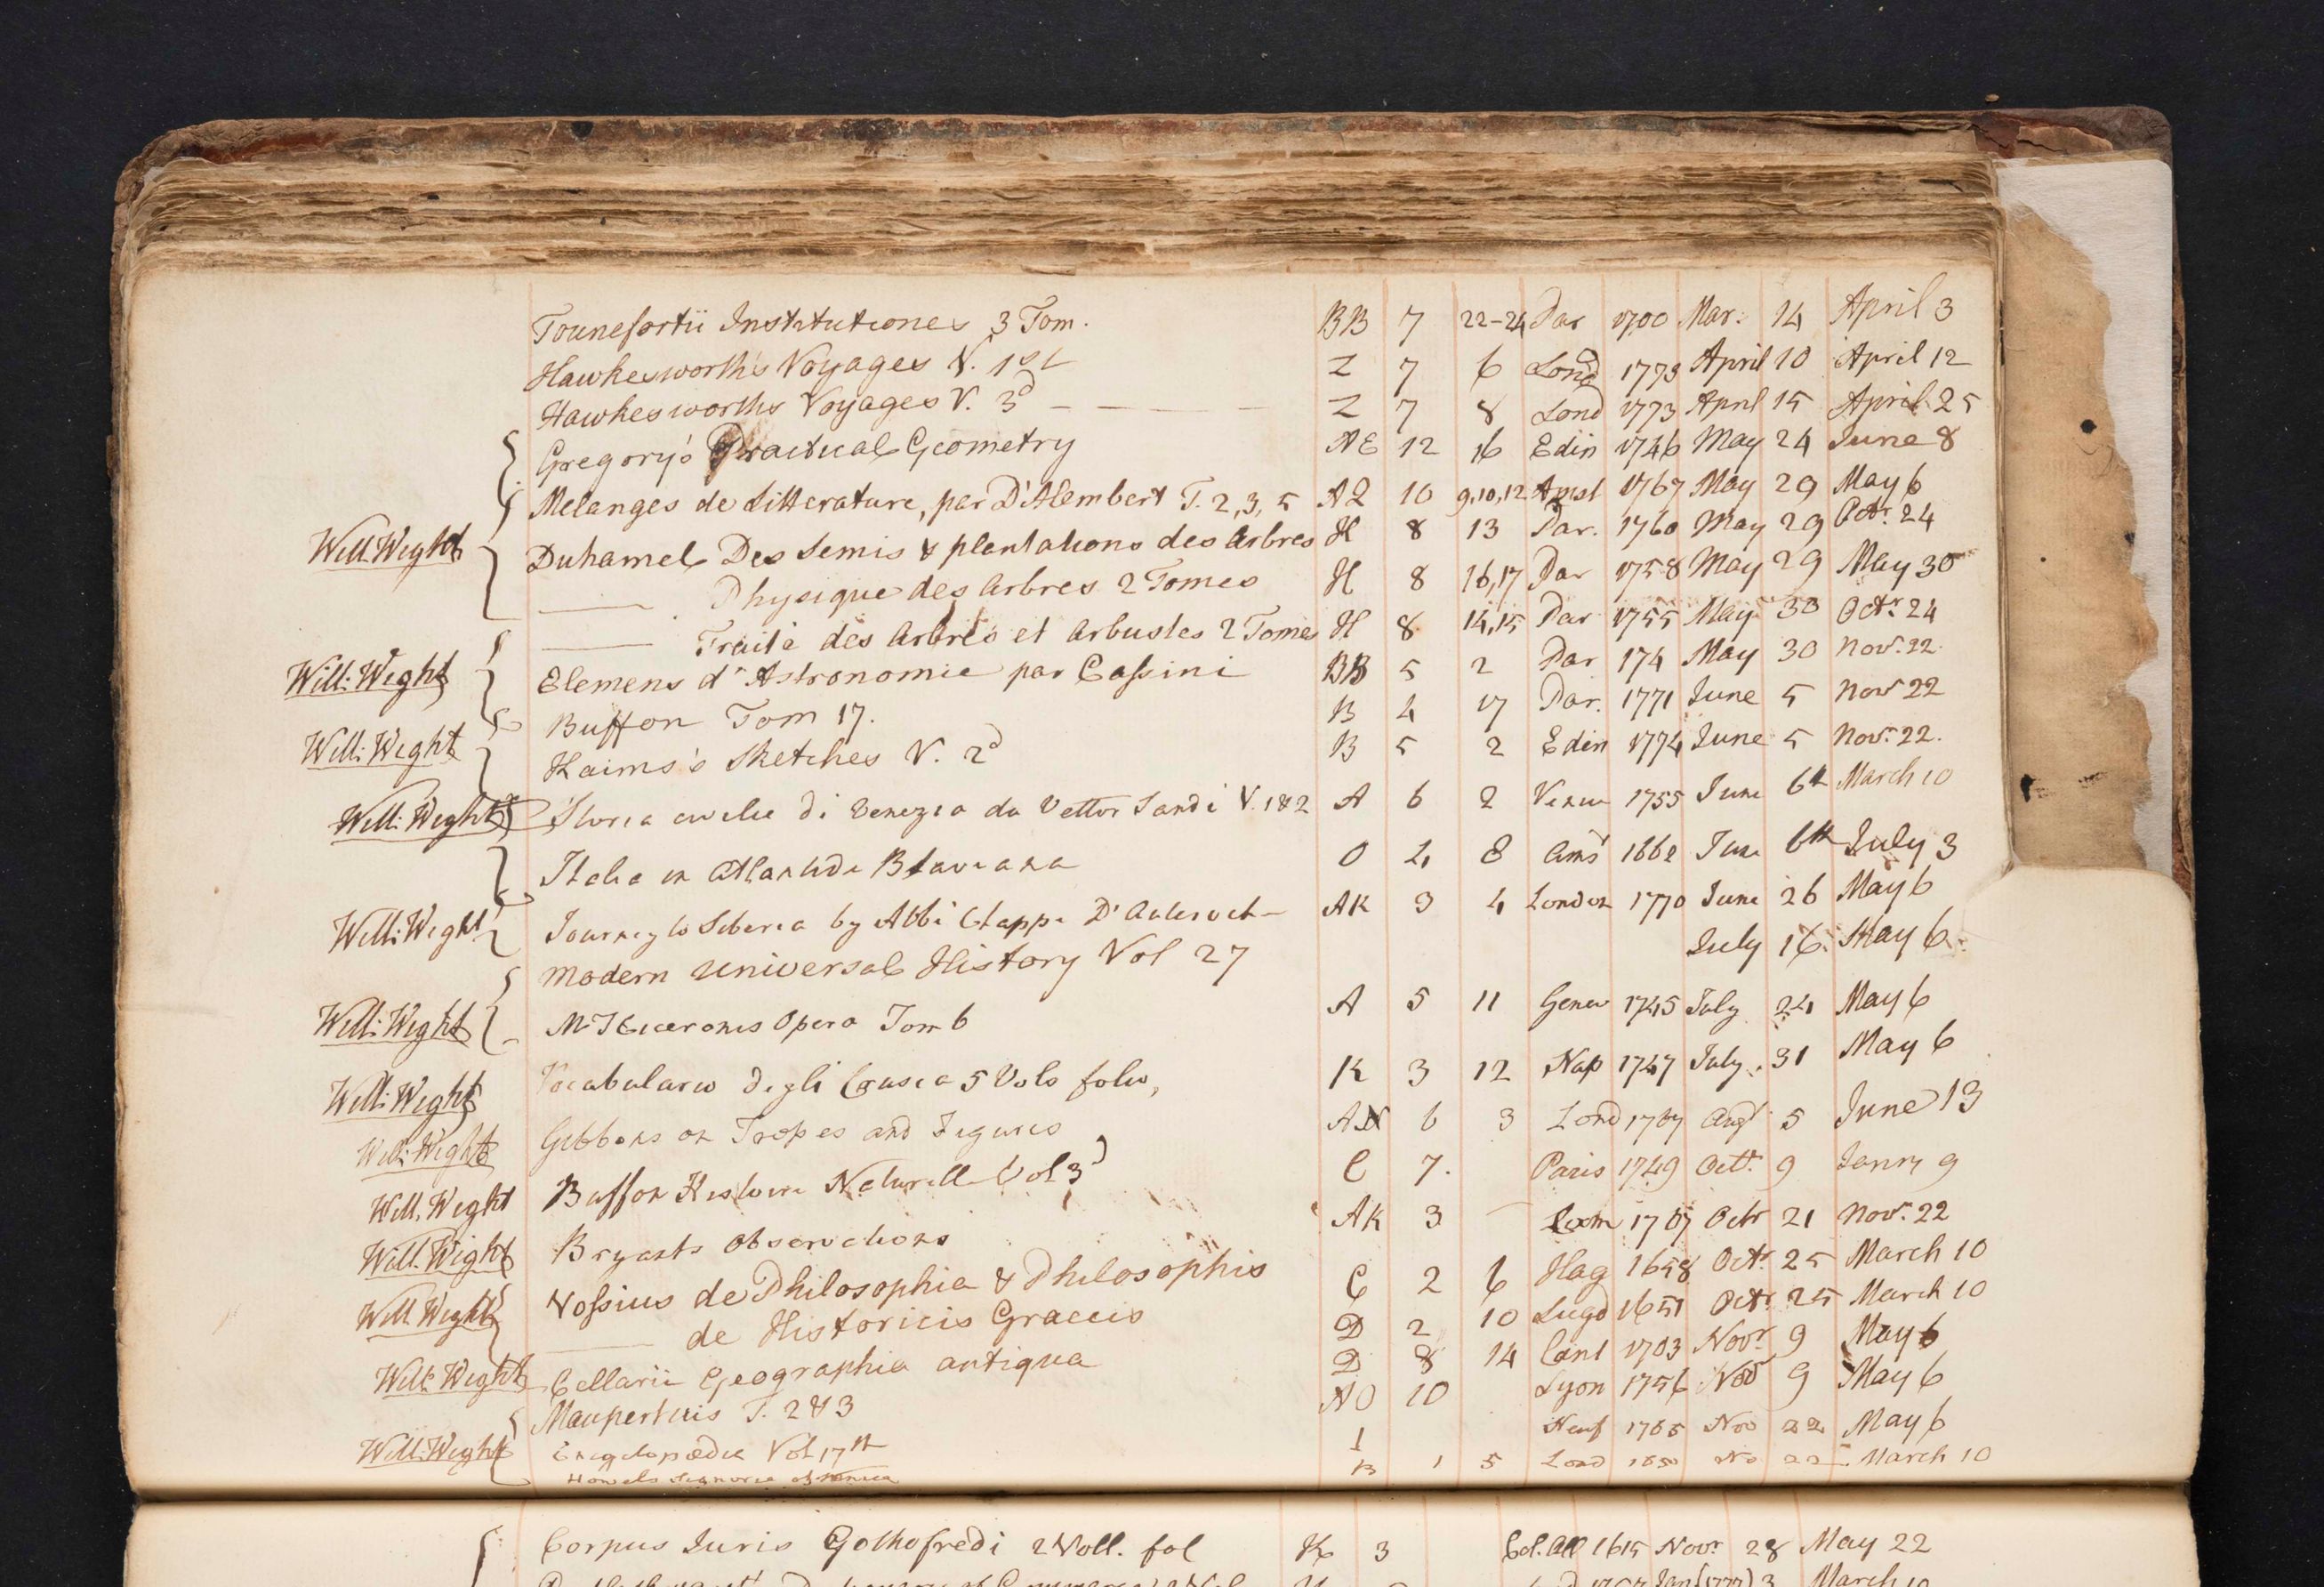 Tounefortii Institutiones 3 Tom. BB 7 22-24 Par 1700 Mar: 14 April 3
Hawkesworth's Voyages V. 1st Z 7 6 Lond 1773 April 10 April 12
Hawkesworths Voyages V. 3d Z 7 8 Lond 1773 April 15 April 25
Gregory's Practical Geometry AE 12 16 Edin 1746 May 24 June 8
Melanges de Litterature, par D'Alembert T. 2, 3, 5 10 9,10,12 Amst 1767 May 29 May 6
Will: Wight Duhamel Des Semis & plantations des Arbres H 8 13 Par. 1760 May 29 Octr. 24
Physique des Arbres 2 Tomes H 8 16,17 Par 1758 May 29 May 30
Traité des Arbres et Arbustes 2 Tomes H 8 14,15 Par 1755 May 30 Octr. 24
Will: Wight Elemens d'Astronomie par Cassini BB 5 2 Par 174 May 30 Novr. 22
Buffon Tom 17. B 4 17 Par. 1771 June 5 Novr 22
Will: Wight Kaims's Sketches V. 2d B 5 2 Edin 1774 June 5 Novr. 22.
Will: Wight Storia civile di Venezia da Vettor Sandi V. 1 & 2 A 6 2 1755 June 6th March 10
Italia in Atlantide Blaviana O 2, 8 Ams 1662 June 6th July 3
Will: Wight Journey to Siberia by Abbé Chappe D'Auteroch AK 3 4 London 1770 June 26 May 6
Modern Universal History Vol 27 July 16. May 6.
Will: Wight M. T Ciceronis Opera Tom 6 A 5 11 Genev 1745 July 24 May 6
Will: Wight Vocabulario degli Crusca 5 Vols folio, K 3 12 Nap 1747 July 31 May 6
Will: Wight Gibbons on Tropes and Figures AN 6 3 Lond 1767 Augt 5 June 13
Will. Wight Buffon Histoire Naturelle Vol 3d C 7. Paris 1749 Octr. 9 Janry 9
Will. Wight Bryants Observations AK 3 1767 Octr 21 Novr. 22
Will Wight Vossius de Philosophia & Philosophis C 2 6 Hag 1658 Octr. 25 March 10
de Historicis Graecis D 2 10 Lugd 1651 Octr. 25 March 10
Will: Wight Cellarii Geographia antiqua D 8 14 Cant 1703 Novr 9 May 6
Maupertuis T. 2 & 3 AO 10 Lyon 1756 Nov 9 May 6
Will: Wight Encyclopædie Vol 17th I Neuf 1765 Nov 22 May 6
Howels Signorie of Venice B 1 5 Lond No 22 March 10
Corpus Juris Gothofredi 2 Voll. fol K 3 Col. All 1615 Novr 28 May 22
March 10